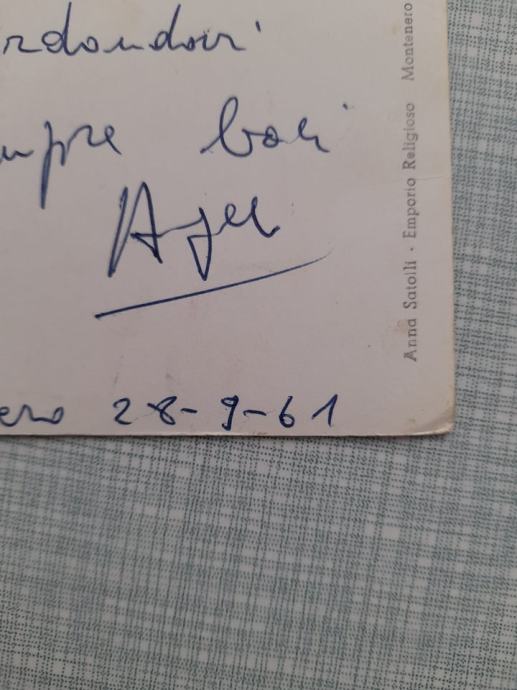 rdandovi
mpre baci
ero 28-9-61
Anna Satolli · Emporio Religioso Montenero